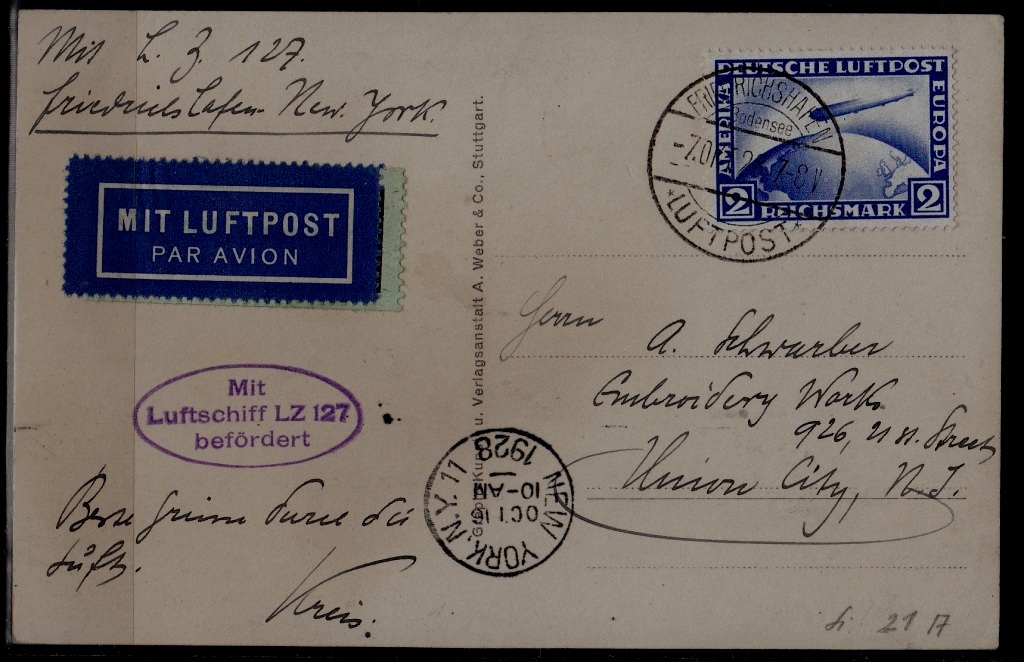 Mit L. Z. 127.
Friedrichshafen New. York.
MIT LUFTPOST
PAR AVION
Mit
Luftschiff LZ 127
befördert
Beste Grüsse durch die
Luft.
Kreis.
u. Verlagsanstalt A. Weber & Co., Stuttgart.
DEUTSCHE LUFTPOST
AMERIKA
EUROPA
2 REICHSMARK 2
FRIEDRICHSHAFEN
Bodensee
7-8 V
LUFTPOST
Herrn
A. Schwarber
Embroidery Works
926, 21 st. Street
Union City, N. J.
NEW YORK, N.Y. 11
OCT 16
10-AM
1928
21 17